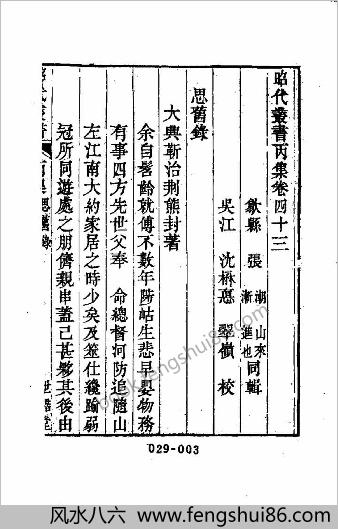 昭代叢書丙集卷四十三
歙縣 張 潮 山來 漸 進也 同輯
吳江 沈楙惪 翠嶺 校
思舊錄
大興靳治荆熊封著
余自髫齡就傅不數年陟岵生悲早嬰物務
有事四方先世父奉 命總督河防追隨山
左江南大約家居之時少矣及筮仕纔踰弱
冠所同遊處之朋儕親串蓋已甚夥其後由
思舊錄
世楷堂
029-003
www.fengshui86.com
风水八六 - www.fengshui86.com